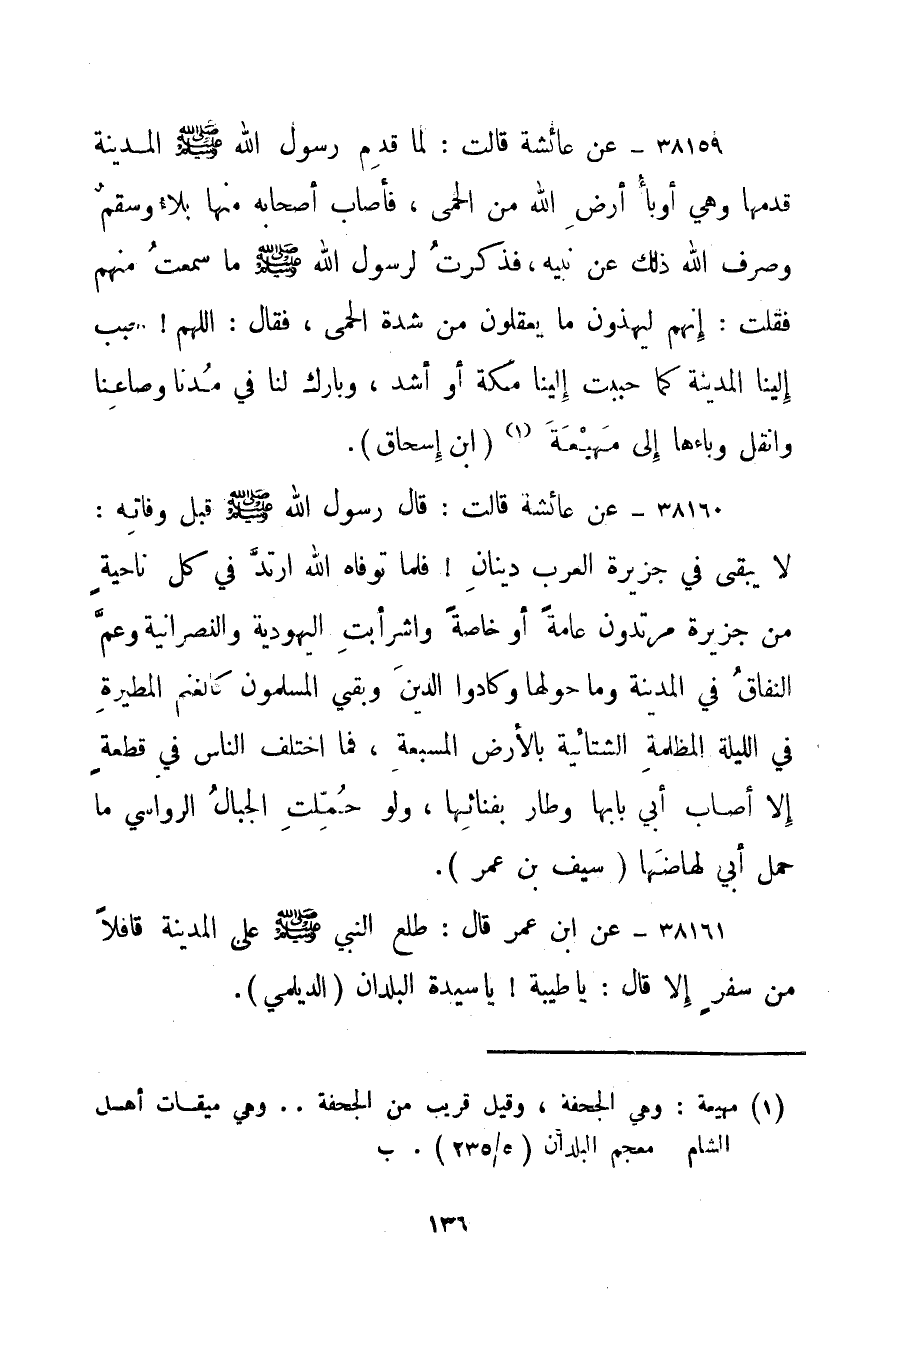 ٣٨١٥٩ – عن عائشة قالت : لما قدِم رسول الله ﷺ المدينة
قدمها وهي أوبأُ أرضِ الله من الحمى ، فأصاب أصحابه منها بلاء وسقمٌ
وصرف الله ذلك عن نبيه ، فذكرتُ لرسول الله ﷺ ما سمعتُ منهم
فقلت : إنهم ليهذون ما يعقلون من شدة الحمى ، فقال : اللهم ! حبب
إلينا المدينة كما حببت إلينا مكة أو أشد ، وبارك لنا في مُدنا وصاعنا
وانقل وباءها إلى مَهيْعَةَ (١) ( ابن إسحاق ) .
٣٨١٦٠ – عن عائشة قالت : قال رسول الله ﷺ قبل وفاتِه :
لا يبقى في جزيرة العرب دينانِ ! فلما توفاه الله ارتدَّ في كل ناحيةٍ
من جزيرة مرتدون عامةً أو خاصةً واشرأبتِ اليهودية والنصرانية وعمَّ
النفاقُ في المدينة وما حولها وكادوا الدينَ وبقي المسلمون كالغنم المطيرةِ
في الليلة المظلمةِ الشتائية بالأرض المسبعةِ ، فما اختلف الناس في قطعةٍ
إلا أصاب أبي بابها وطار بفنائِها ، ولو حُمّلتِ الجبالُ الرواسي ما
حمل أبي لهاضَها ( سيف بن عمر ) .
٣٨١٦١ – عن ابن عمر قال : طلع النبي ﷺ على المدينة قافلاً
من سفرٍ إلا قال : يا طيبة ! يا سيدة البلدان ( الديلمي ) .
(١) مهيعة : وهي الجحفة ، وقيل قريب من الجحفة .. وهي ميقات أهل
الشام معجم البلدان ( ٢٣٥/٥ ) . ب
١٣٦